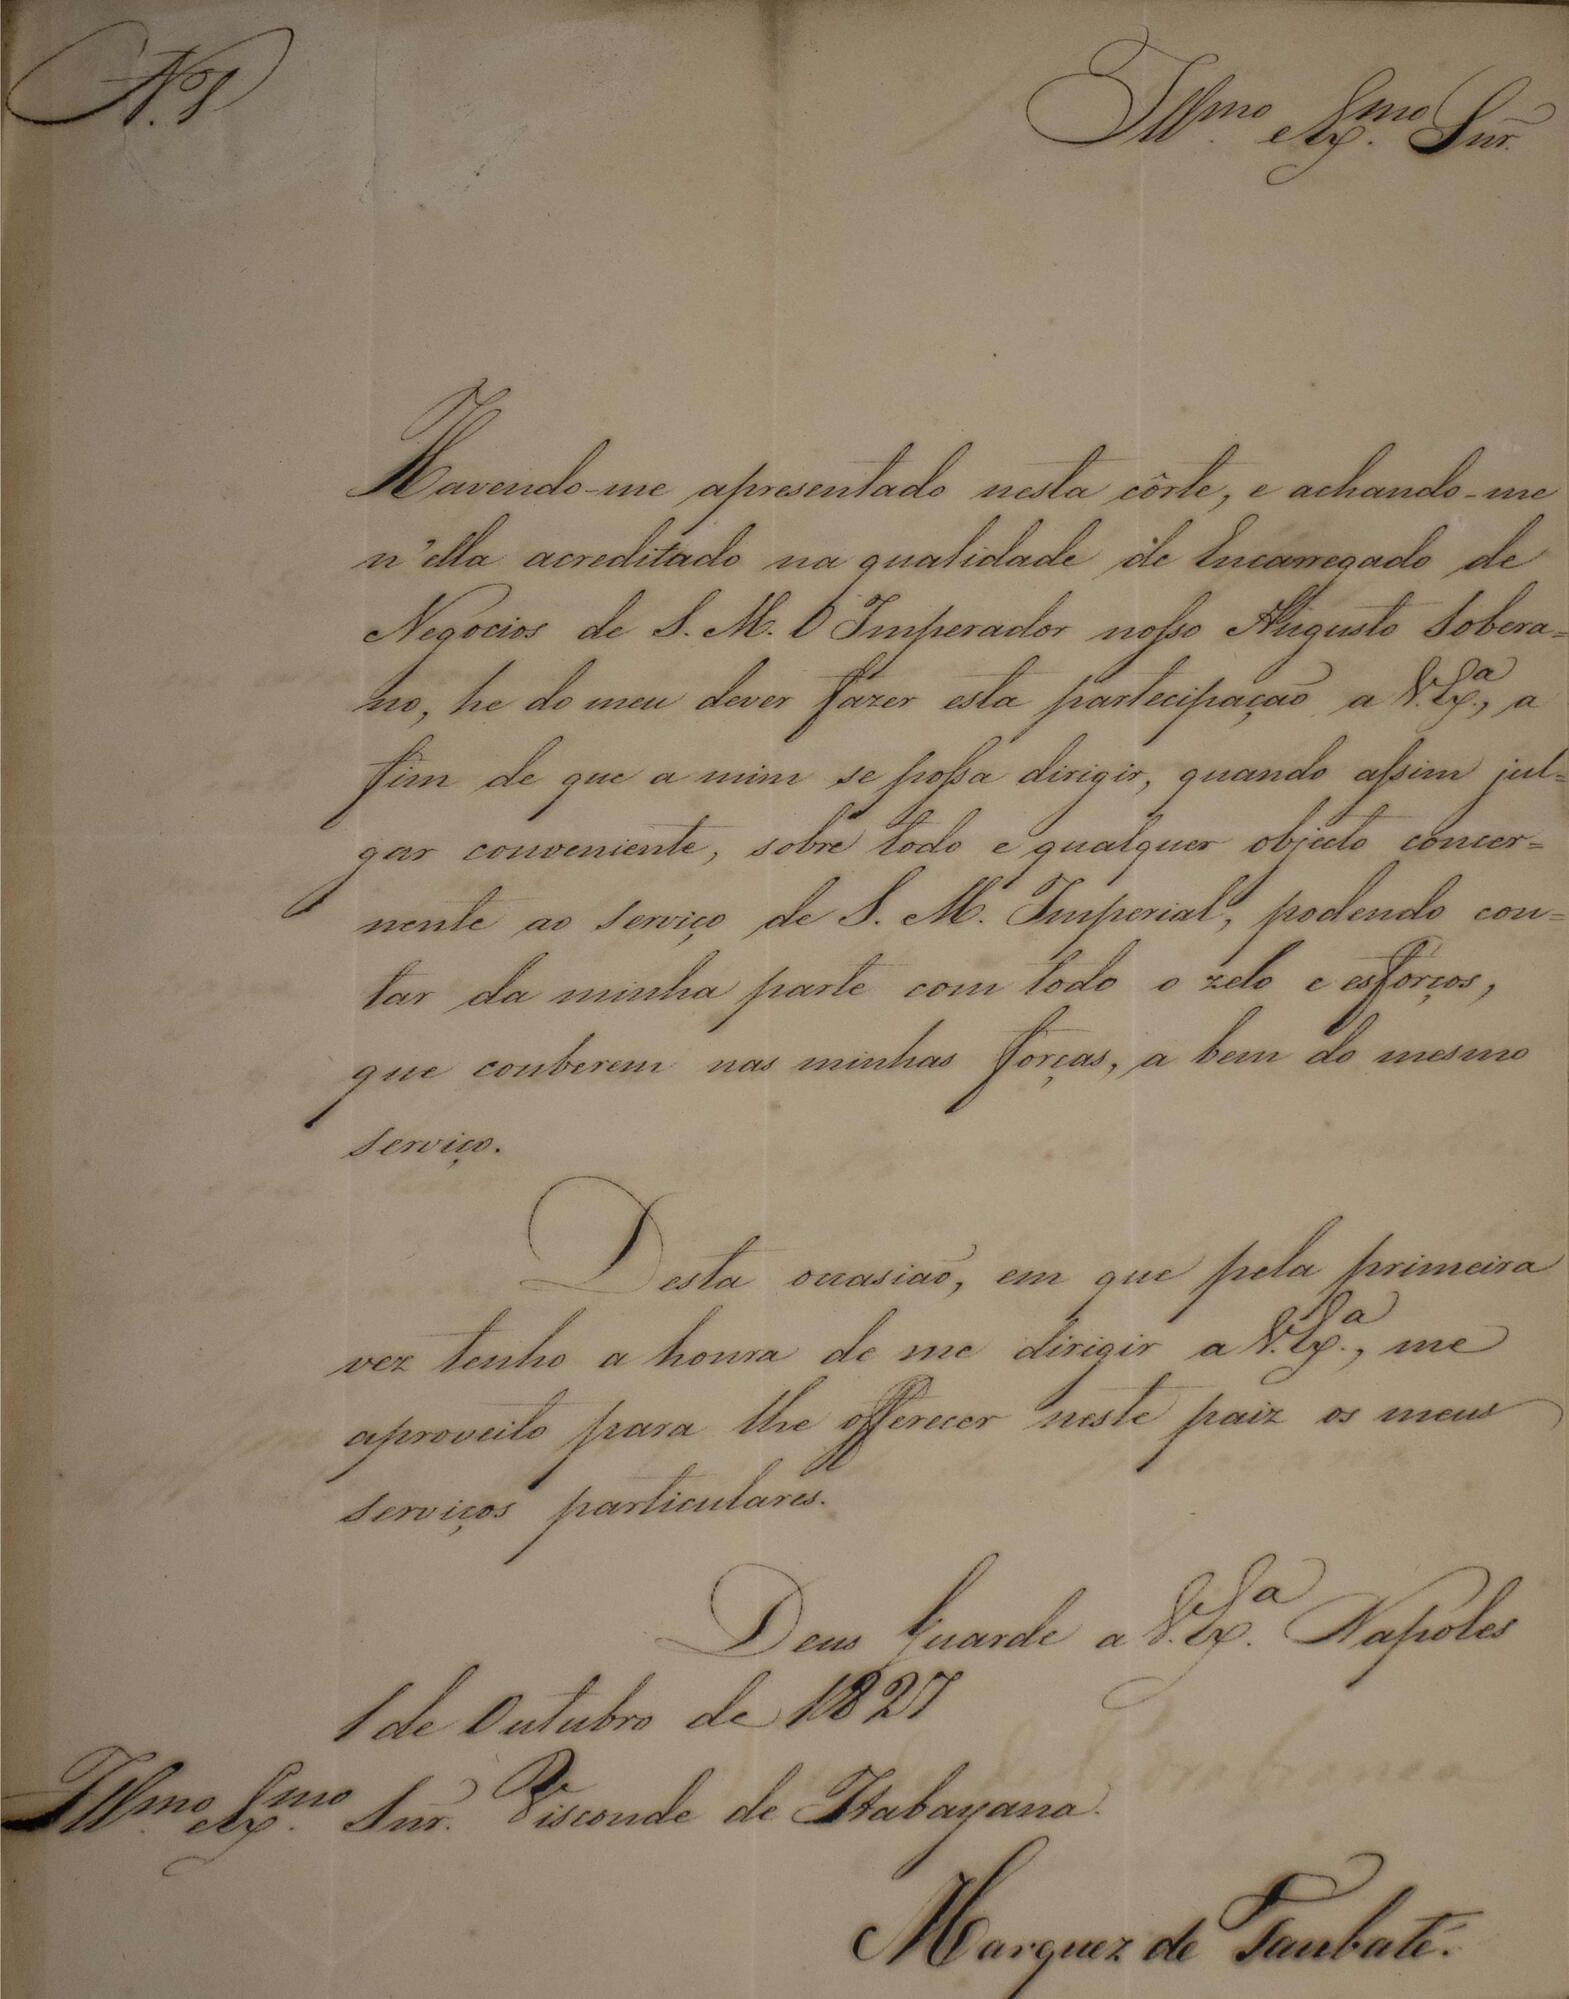 N.º 1
Illmo. Exmo. Snr.
Havendo-me apresentado nesta côrte, e achando-me
n'ella acreditado na qualidade de Encarregado de
Negocios de S. M. O Imperador nosso Augusto Sobera=
no, he do meu dever fazer esta partecipação a V. Exª., a
fim de que a mim se possa dirigir, quando assim jul=
gar conveniente, sobre todo e qualquer objecto concer=
nente ao serviço de S. M. Imperial, podendo con=
tar da minha parte com todo o zelo e esforços,
que couberem nas minhas forças, a bem do mesmo
serviço.
Desta occasião, em que pela primeira
vez tenho a honra de me dirigir a V. Exª., me
aproveito para lhe offerecer neste paiz os meus
serviços particulares.
Deus Guarde a V. Exª. Napoles
1 de Outubro de 1827
Illmo. Exmo. Snr. Visconde de Itabayana.
Marquez de Taubaté.